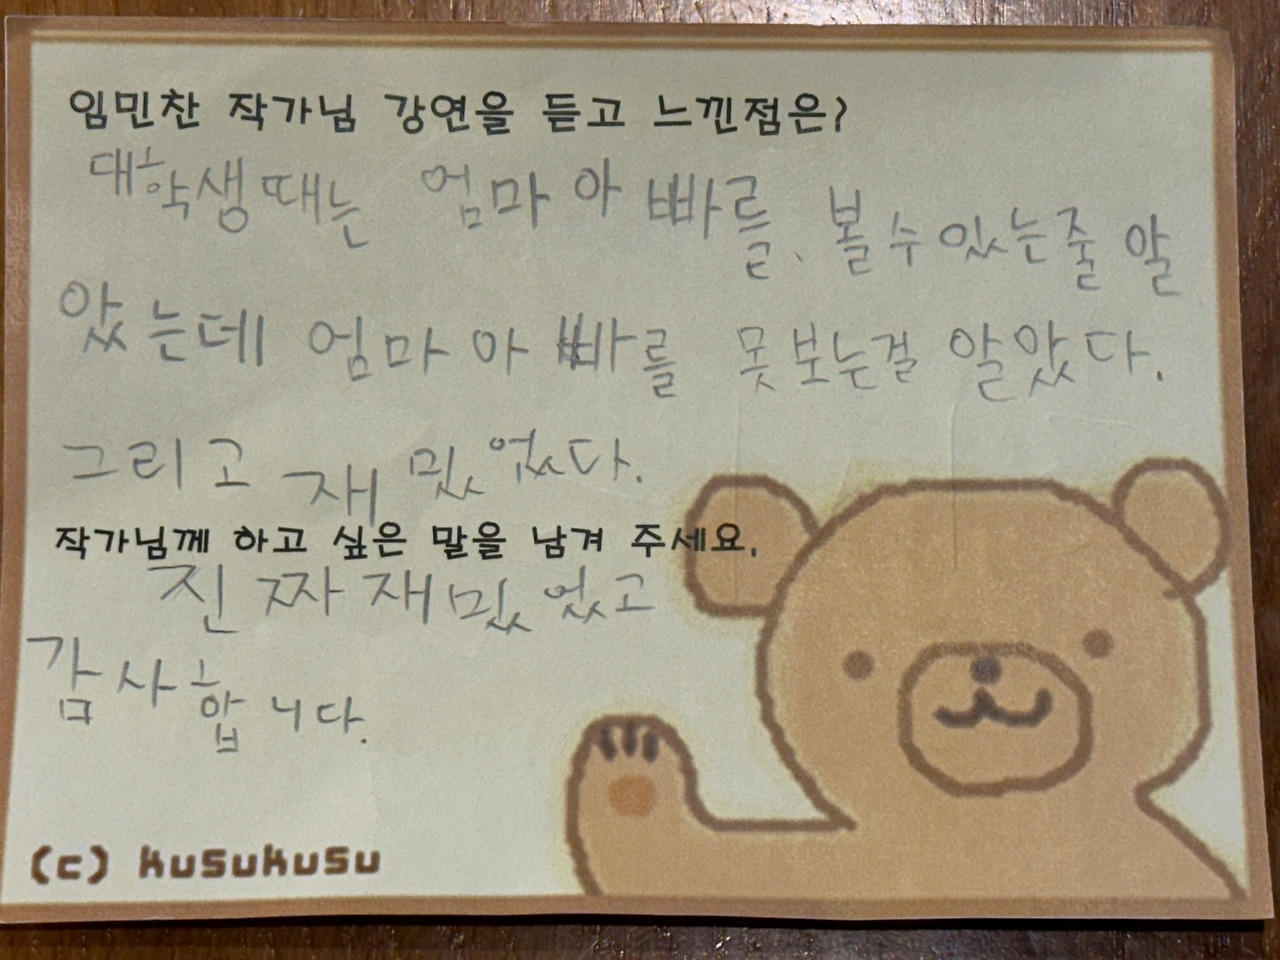 임민찬 작가님 강연을 듣고 느낀점은?
대학생때는 엄마아빠를. 볼수있는줄 알
았는데 엄마아빠를 못보는걸 알았다.
그리고 재밌었다.
작가님께 하고 싶은 말을 남겨 주세요.
진짜재밌었고
감사합니다.
(c) kusukusu